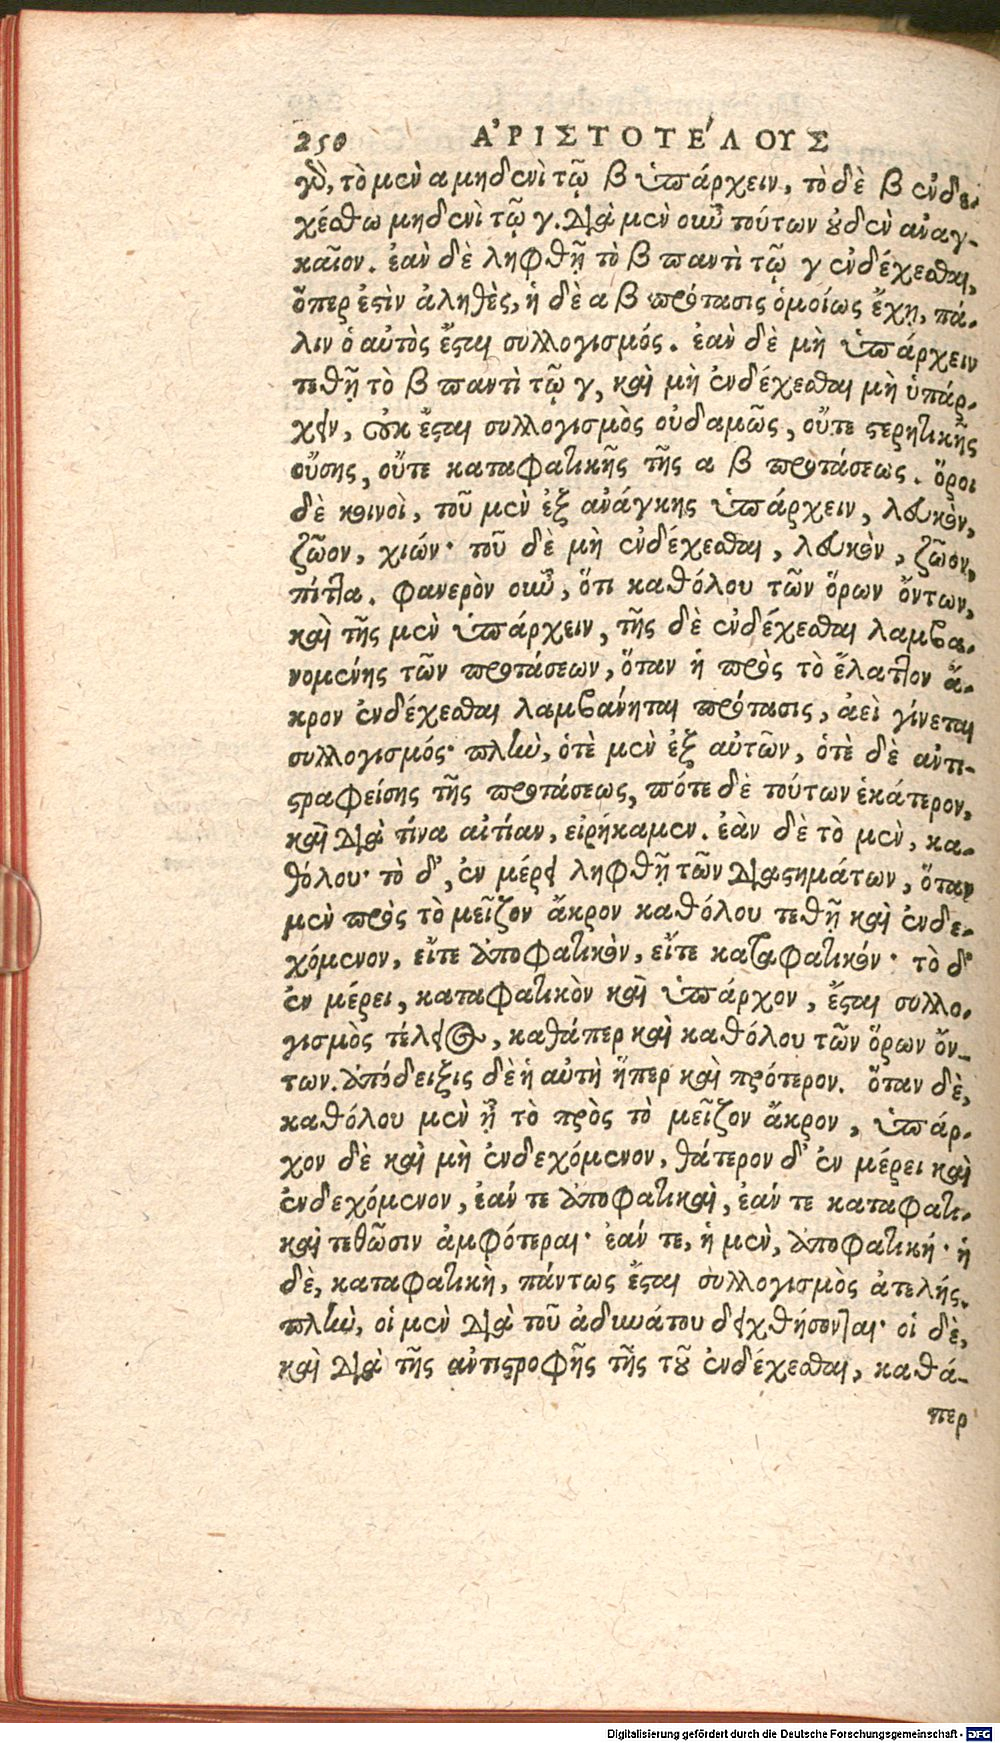 250 ἈΡΙΣΤΟΤΈΛΟΥΣ
γὰρ, τὸ μὲν α μηδενὶ τῷ β ὑπάρχειν, τὸ δὲ β ἐνδε-
χέσθω μηδενὶ τῷ γ. διὰ μὲν οὖν τούτων οὐδὲν ἀναγ-
καῖον. ἐὰν δὲ ληφθῇ τὸ β παντὶ τῷ γ ἐνδέχεσθαι,
ὅπερ ἐστὶν ἀληθὲς, ἡ δὲ α β πρότασις ὁμοίως ἔχῃ, πά-
λιν ὁ αὐτὸς ἔσται συλλογισμός. ἐὰν δὲ μὴ ὑπάρχειν
τεθῇ τὸ β παντὶ τῷ γ, καὶ μὴ ἐνδέχεσθαι μὴ ὑπάρ-
χειν, οὐκ ἔσται συλλογισμὸς οὐδαμῶς, οὔτε στερητικῆς
οὔσης, οὔτε καταφατικῆς τῆς α β προτάσεως. ὅροι
δὲ κοινοὶ, τοῦ μὲν ἐξ ἀνάγκης ὑπάρχειν, λευκὸν,
ζῶον, χιών· τοῦ δὲ μὴ ἐνδέχεσθαι, λευκὸν, ζῶον,
πίττα. φανερὸν οὖν, ὅτι καθόλου τῶν ὅρων ὄντων,
καὶ τῆς μὲν ὑπάρχειν, τῆς δὲ ἐνδέχεσθαι λαμβα-
νομένης τῶν προτάσεων, ὅταν ἡ πρὸς τὸ ἔλαττον ἄ-
κρον ἐνδέχεσθαι λαμβάνηται πρότασις, ἀεὶ γίνεται
συλλογισμός· πλὴν, ὁτὲ μὲν ἐξ αὐτῶν, ὁτὲ δὲ ἀντι-
στραφείσης τῆς προτάσεως, πότε δὲ τούτων ἑκάτερον,
καὶ διὰ τίνα αἰτίαν, εἰρήκαμεν. ἐὰν δὲ τὸ μὲν, κα-
θόλου· τὸ δ', ἐν μέρει ληφθῇ τῶν διαστημάτων, ὅταν
μὲν πρὸς τὸ μεῖζον ἄκρον καθόλου τεθῇ καὶ ἐνδε-
χόμενον, εἴτε ἀποφατικὸν, εἴτε καταφατικόν· τὸ δ'
ἐν μέρει, καταφατικὸν καὶ ὑπάρχον, ἔσται συλλο-
γισμὸς τέλειος, καθάπερ καὶ καθόλου τῶν ὅρων ὄν-
των. ἀπόδειξις δὲ ἡ αὐτὴ ἥπερ καὶ πρότερον. ὅταν δὲ,
καθόλου μὲν ᾖ τὸ πρὸς τὸ μεῖζον ἄκρον, ὑπάρ-
χον δὲ καὶ μὴ ἐνδεχόμενον, θάτερον δ' ἐν μέρει καὶ
ἐνδεχόμενον, ἐάν τε ἀποφατικαὶ, ἐάν τε καταφατι-
καὶ τεθῶσιν ἀμφότεραι· ἐάν τε, ἡ μὲν, ἀποφατική· ἡ
δὲ, καταφατικὴ, πάντως ἔσται συλλογισμὸς ἀτελής.
πλὴν, οἱ μὲν διὰ τοῦ ἀδυνάτου δειχθήσονται· οἱ δὲ,
καὶ διὰ τῆς ἀντιστροφῆς τῆς τοῦ ἐνδέχεσθαι, καθά-
περ
Digitalisierung gefördert durch die Deutsche Forschungsgemeinschaft - DFG